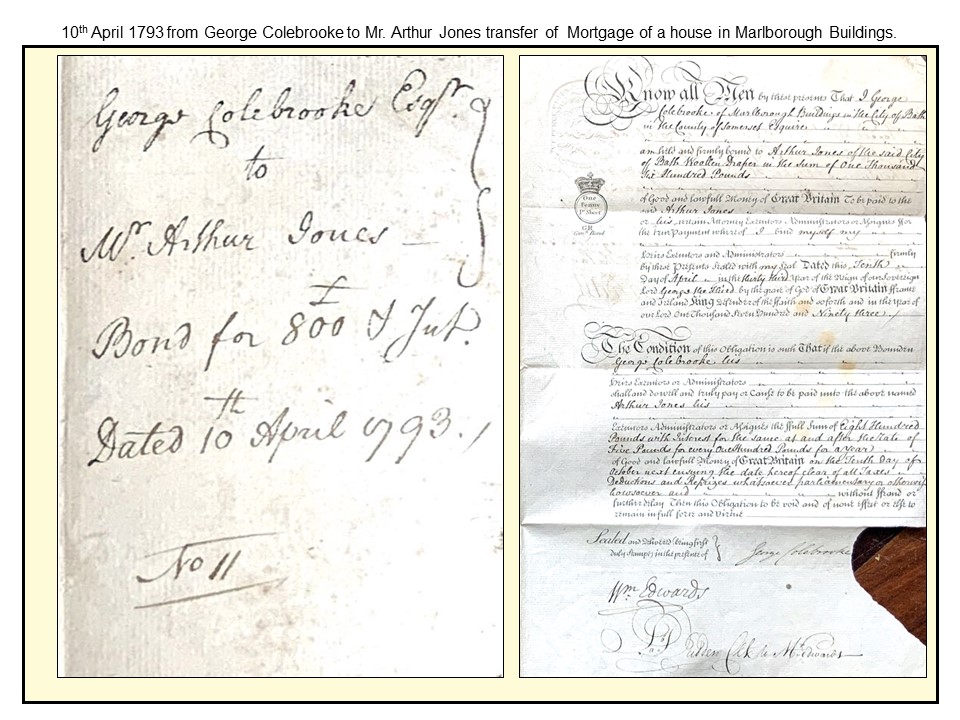 10th April 1793 from George Colebrooke to Mr. Arthur Jones transfer of Mortgage of a house in Marlborough Buildings.
George Colebrooke Esqr.
to
Mr. Arthur Jones
£
Bond for 800 & Int.
Dated 10th April 1793.
No 11
Know all Men by these presents That I George
Colebrooke of Marlborough Buildings in the City of Bath
in the County of Somerset Esquire
am held and firmly bound to Arthur Jones of the said City
of Bath Woollen Draper in the Sum of One Thousand
Six Hundred Pounds
of Good and lawfull Money of Great Britain To be paid to the
said Arthur Jones
or his certain Attorney Executors Administrators or Assignes For
the true Payment whereof I bind myself my
Heirs Executors and Administrators firmly
by these Presents Sealed with my Seal Dated this Tenth
Day of April in the thirty third Year of the Reign of our Sovereign
Lord George the Third by the grace of God of Great Britain ffrance
and Ireland King Defender of the Faith and so forth and in the Year of
our Lord One Thousand Seven Hundred and Ninety three
One
Penny
GR
The Condition of this Obligation is such That if the above Bounden
George Colebrooke his
Heirs Executors or Administrators
shall and do well and truly pay or Cause to be paid unto the above named
Arthur Jones his
Executors Administrators or Assignes the ffull Sum of Eight Hundred
Pounds with Interest for the same at and after the rate of
Five Pounds for every One Hundred Pounds for a Year
of Good and lawfull Money of Great Britain on the Tenth Day of
October next ensuing the date hereof clear of all Taxes
Deductions and Reprizes whatsoever parliamentary or otherwise
howsoever and without ffraud or
further delay Then this Obligation to be void and of none effect or else to
remain in full force and Virtue
Sealed and delivered (being first
duly stampt) in the presence of
George Colebrooke
Wm. Edwards
Clk to Mr Edwards